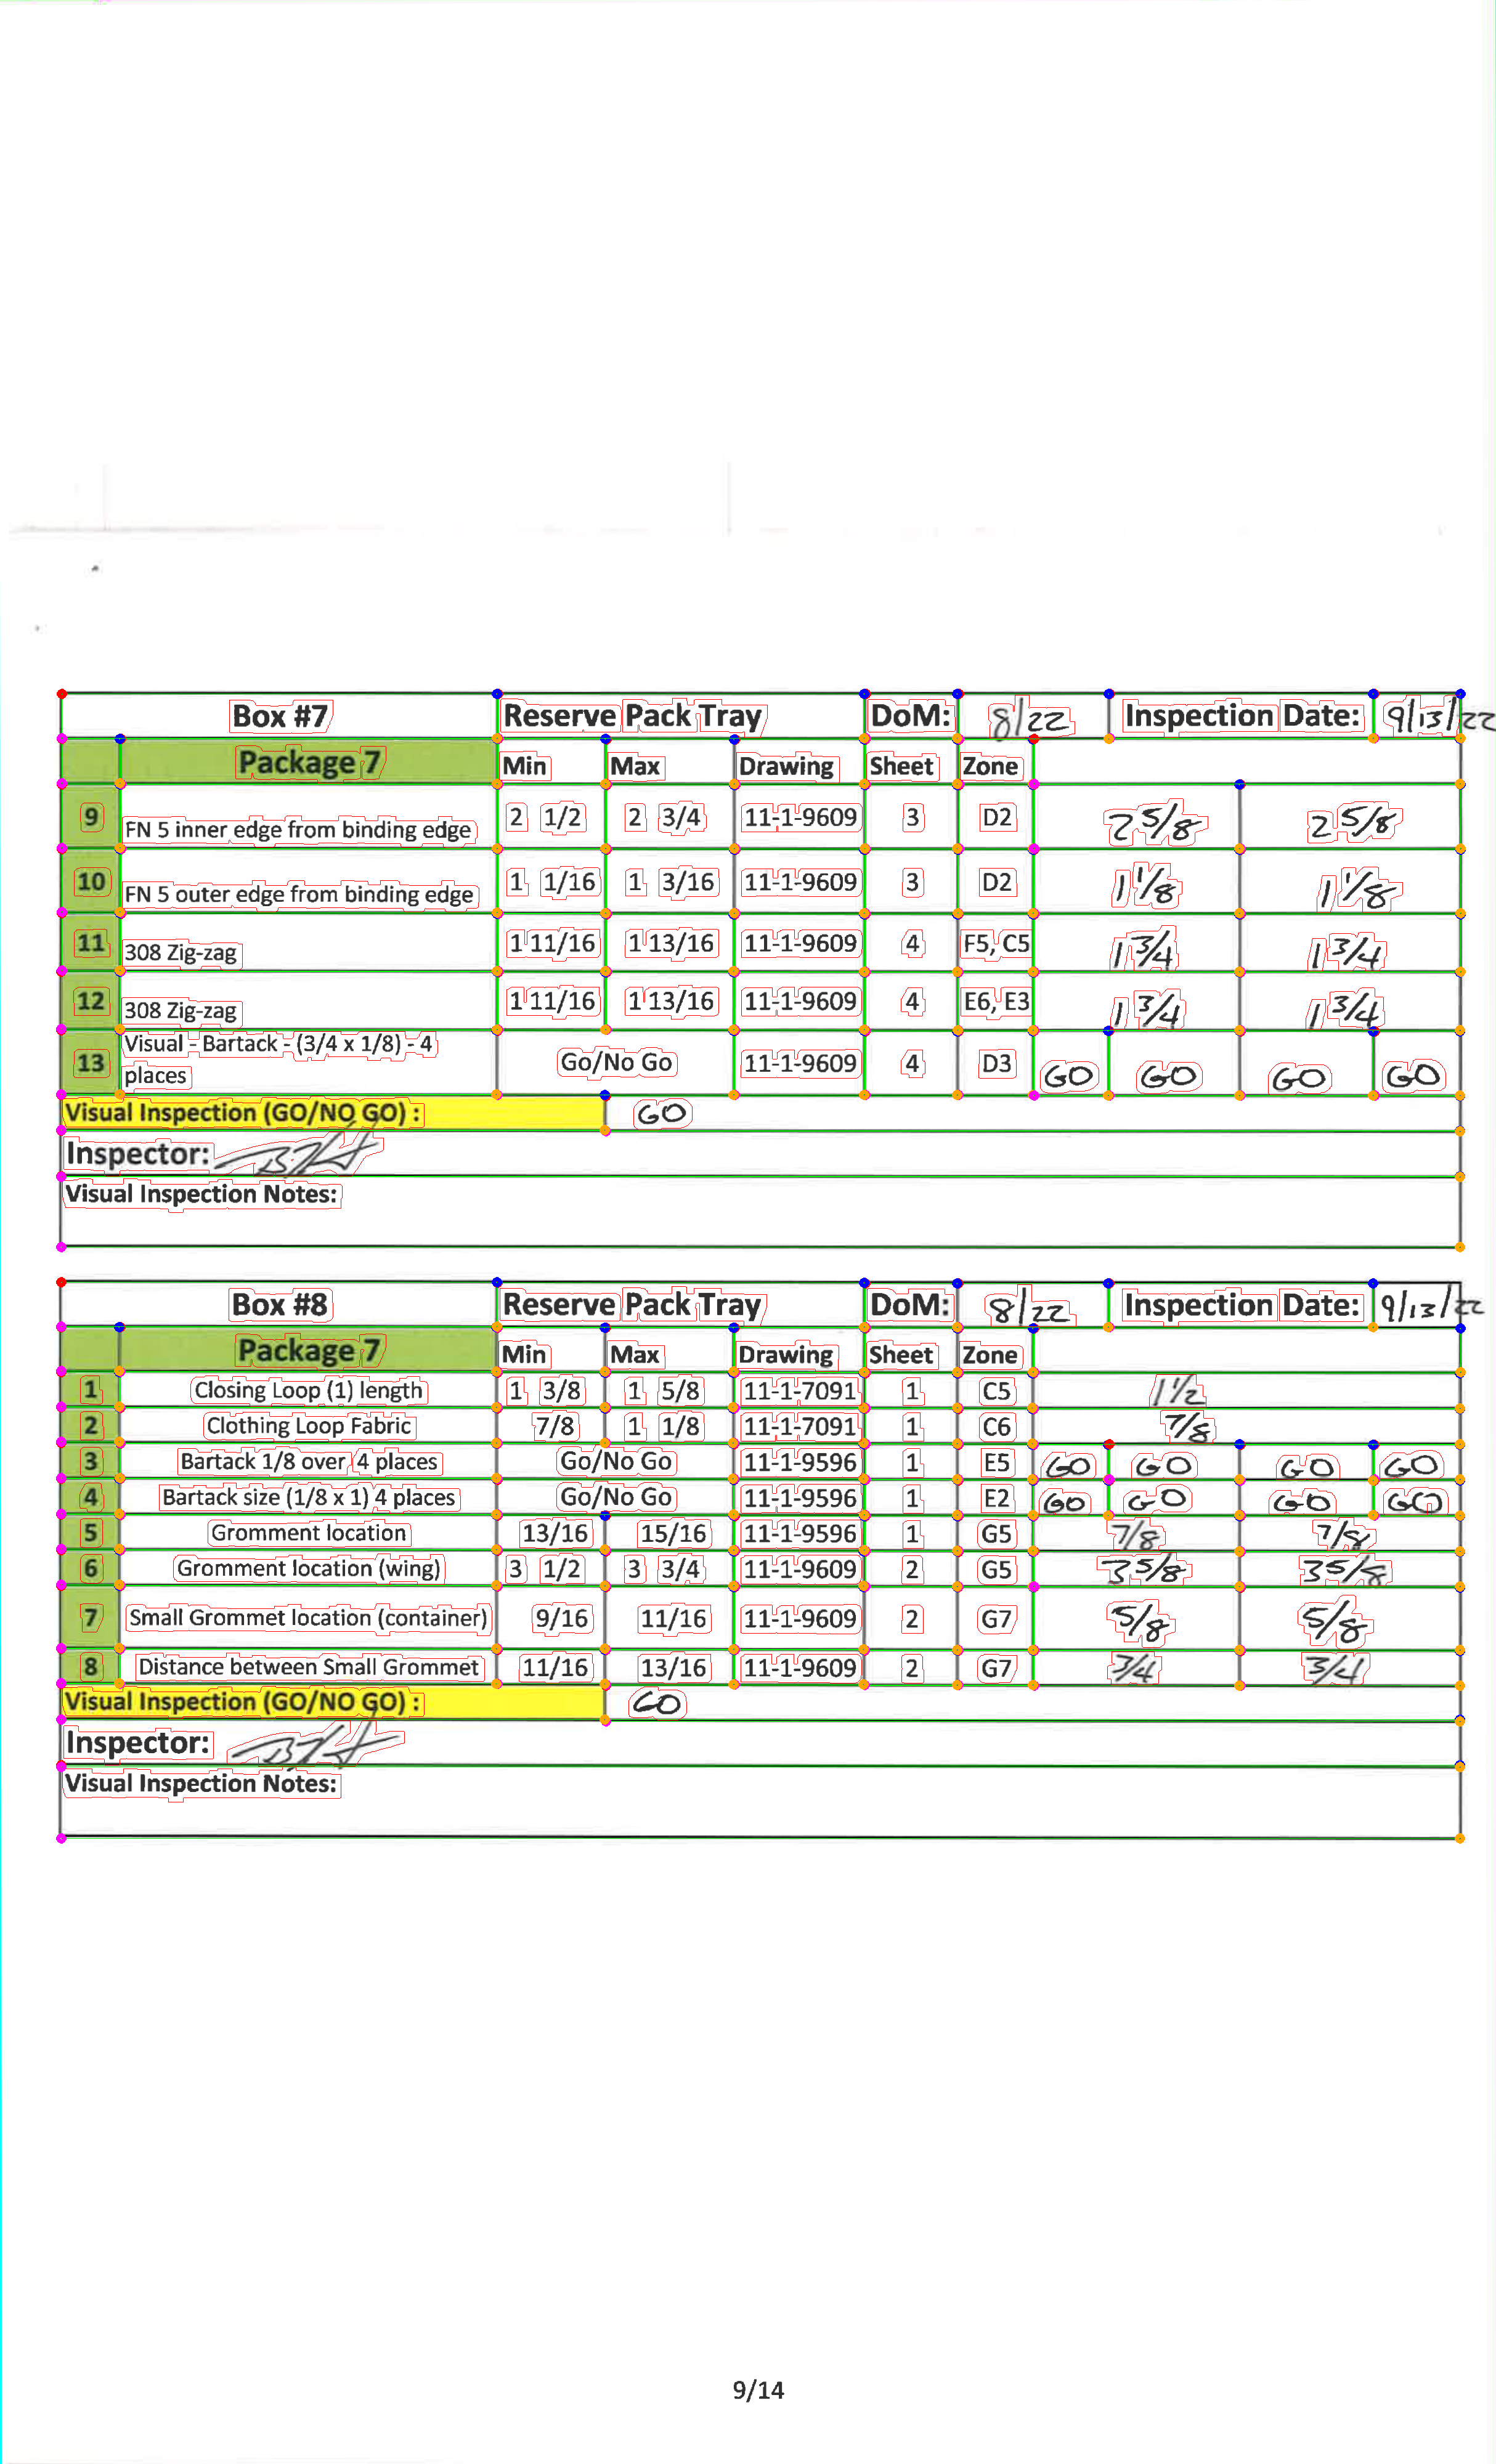 Box #7 Reserve Pack Tray DoM: 8/22 Inspection Date: 9/13/22
Package 7 Min Max Drawing Sheet Zone
9 FN 5 inner edge from binding edge 2 1/2 2 3/4 11-1-9609 3 D2 2 5/8 2 5/8
10 FN 5 outer edge from binding edge 1 1/16 1 3/16 11-1-9609 3 D2 1 1/8 1 1/8
11 308 Zig-zag 1 11/16 1 13/16 11-1-9609 4 F5, C5 1 3/4 1 3/4
12 308 Zig-zag 1 11/16 1 13/16 11-1-9609 4 E6, E3 1 3/4 1 3/4
13 Visual - Bartack - (3/4 x 1/8) - 4
places Go/No Go 11-1-9609 4 D3 GO GO GO GO
Visual Inspection (GO/NO GO) : GO
Inspector:
Visual Inspection Notes:
Box #8 Reserve Pack Tray DoM: 8/22 Inspection Date: 9/13/22
Package 7 Min Max Drawing Sheet Zone
1 Closing Loop (1) length 1 3/8 1 5/8 11-1-7091 1 C5 1 1/2
2 Clothing Loop Fabric 7/8 1 1/8 11-1-7091 1 C6 7/8
3 Bartack 1/8 over 4 places Go/No Go 11-1-9596 1 E5 GO GO GO GO
4 Bartack size (1/8 x 1) 4 places Go/No Go 11-1-9596 1 E2 GO GO GO GO
5 Gromment location 13/16 15/16 11-1-9596 1 G5 7/8 7/8
6 Gromment location (wing) 3 1/2 3 3/4 11-1-9609 2 G5 3 5/8 3 5/8
7 Small Grommet location (container) 9/16 11/16 11-1-9609 2 G7 5/8 5/8
8 Distance between Small Grommet 11/16 13/16 11-1-9609 2 G7 3/4 3/4
Visual Inspection (GO/NO GO) : GO
Inspector:
Visual Inspection Notes:
9/14